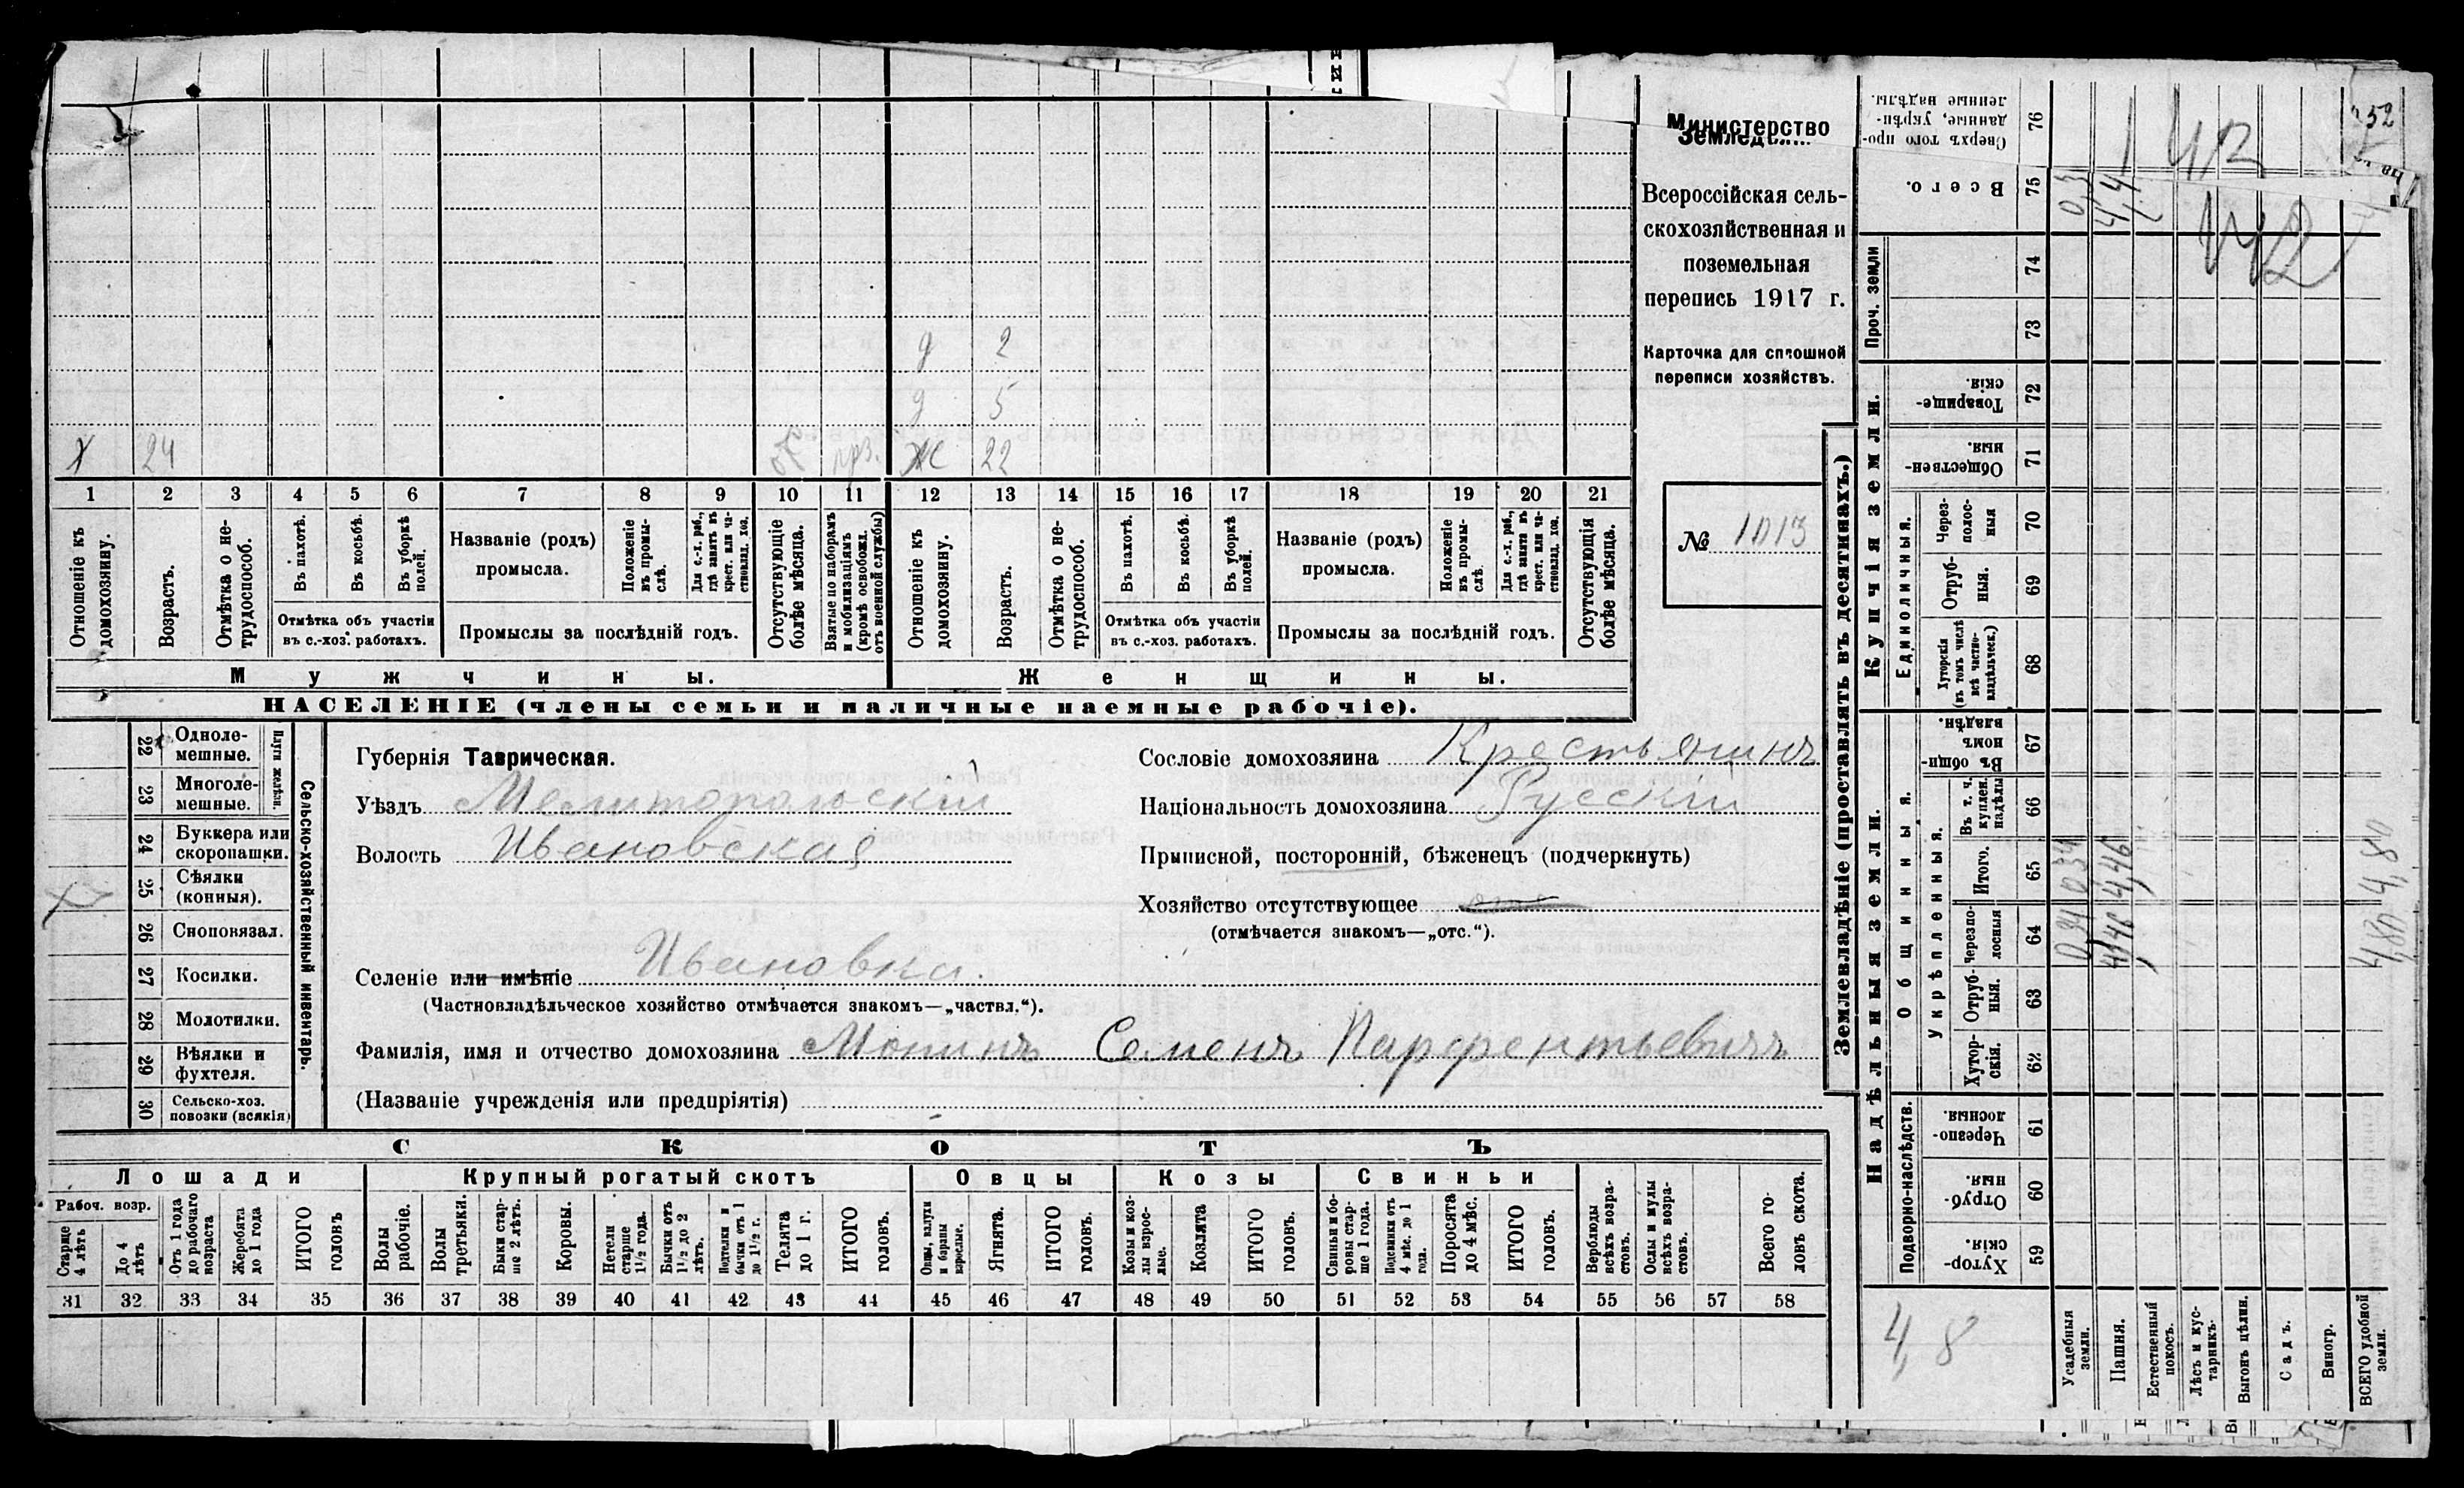 д 2
д 5
Х 24 об. прз. Ж 22
1 2 3 4 5 6 7 8 9 10 11 12 13 14 15 16 17 18 19 20 21
Отношеніе къ домохозяину.
Возрастъ.
Отмѣтка о не-трудоспособ.
Въ пахотѣ.
Въ косьбѣ.
Въ уборкѣ полей.
Отмѣтка объ участіи
въ с.-хоз. работахъ.
Названіе (родъ)
промысла.
Положеніе въ промы-слѣ.
Для с.-х. раб., гдѣ занятъ въ крест. или ча-стновлад. хоз.
Промыслы за послѣдній годъ.
Отсутствующіе болѣе мѣсяца.
Взятые по наборамъ и мобилизаціямъ (кромѣ освобожд. отъ военной службы)
Отношеніе къ домохозяину.
Возрастъ.
Отмѣтка о не-трудоспособ.
Въ пахотѣ.
Въ косьбѣ.
Въ уборкѣ полей.
Отмѣтка объ участіи
въ с.-хоз. работахъ.
Названіе (родъ)
промысла.
Положеніе въ промы-слѣ.
Для с.-х. раб., гдѣ занята въ крест. или ча-стновлад. хоз.
Промыслы за послѣдній годъ.
Отсутствующія болѣе мѣсяца.
Мужчины.
Женщины.
НАСЕЛЕНІЕ (члены семьи и наличные наемные рабочіе).
Министерство
Земледѣлія
Всероссійская сель-
скохозяйственная и
поземельная
перепись 1917 г.
Карточка для сплошной
переписи хозяйствъ.
№ 1013
22 Одноле-мешные.
23 Многоле-мешные.
Плуги желѣзн.
24 Буккера или скоропашки.
25 Сѣялки (конныя).
26 Сноповязал.
27 Косилки.
28 Молотилки.
29 Вѣялки и фухтеля.
30 Сельско-хоз. повозки (всякія)
Сельско-хозяйственный инвентарь.
Губернія Таврическая.
Уѣздъ Мелитопольскій
Волость Ивановская
Сословіе домохозяина Крестьянинъ
Національность домохозяина Русскій
Приписной, посторонній, бѣженецъ (подчеркнуть)
Хозяйство отсутствующее отс
(отмѣчается знакомъ—„отс.“).
Селеніе или имѣніе Ивановка.
(Частновладѣльческое хозяйство отмѣчается знакомъ—„частвл.“).
Фамилія, имя и отчество домохозяина Монинъ Семенъ Парфентьевичъ
(Названіе учрежденія или предпріятія)
СКОТЪ
Лошади Крупный рогатый скотъ Овцы Козы Свиньи
Рабоч. возр.
Старше 4 лѣтъ
До 4 лѣтъ
Отъ 1 года до рабочаго возраста
Жеребята до 1 года
ИТОГО головъ
Волы рабочіе.
Волы третьяки.
Быки стар-ше 2 лѣтъ.
Коровы.
Нетели старше 1½ года.
Бычки отъ 1½ до 2 лѣтъ.
Подтелки и бычки отъ 1 до 1½ г.
Телята до 1 г.
ИТОГО головъ.
Овцы, валухи и бараны взрослые.
Ягнята.
ИТОГО головъ.
Козы и коз-лы взрос-лые.
Козлята
ИТОГО головъ.
Свиньи и бо-ровы стар-ше 1 года.
Подсвинки отъ 4 мѣс. до 1 года.
Поросята до 4 мѣс.
ИТОГО головъ.
Верблюды всѣхъ возра-стовъ.
Ослы и мулы всѣхъ возра-стовъ.
Всего го-ловъ скота.
31 32 33 34 35 36 37 38 39 40 41 42 43 44 45 46 47 48 49 50 51 52 53 54 55 56 57 58
Землевладѣніе (проставлять въ десятинахъ.)
Сверхъ того про-данные, укрѣп-ленные надѣлы. 76
Всего. 75 0,3 4,4
Проч. земли 74 73
Купчія земли.
Товарище-скія. 72
Обществен-ныя. 71
Единоличныя.
Через-полос-ныя 70
Отруб-ныя. 69
Хуторскія (въ томъ числѣ всѣ частно-владѣльческ.) 68
Надѣльныя земли.
Общинныя.
Въ общин-номъ владѣн. 67
Укрѣпленныя.
Въ т. ч. куплен. надѣлы 66
Итого. 65 0,34 4,46 4,80
Черезпо-лосныя 64 0,34 4,46 4,80
Отруб-ныя. 63
Хутор-скія. 62
Подворно-наслѣдств.
Черезпо-лосныя. 61
Отруб-ныя. 60
Хутор-скія. 59
4,8
Усадебныя земли.
Пашня.
Естественный покосъ.
Лѣсъ и кус-тарникъ.
Выгонъ цѣлин.
Садъ.
Виногр.
ВСЕГО удобной земли.
142
142
52